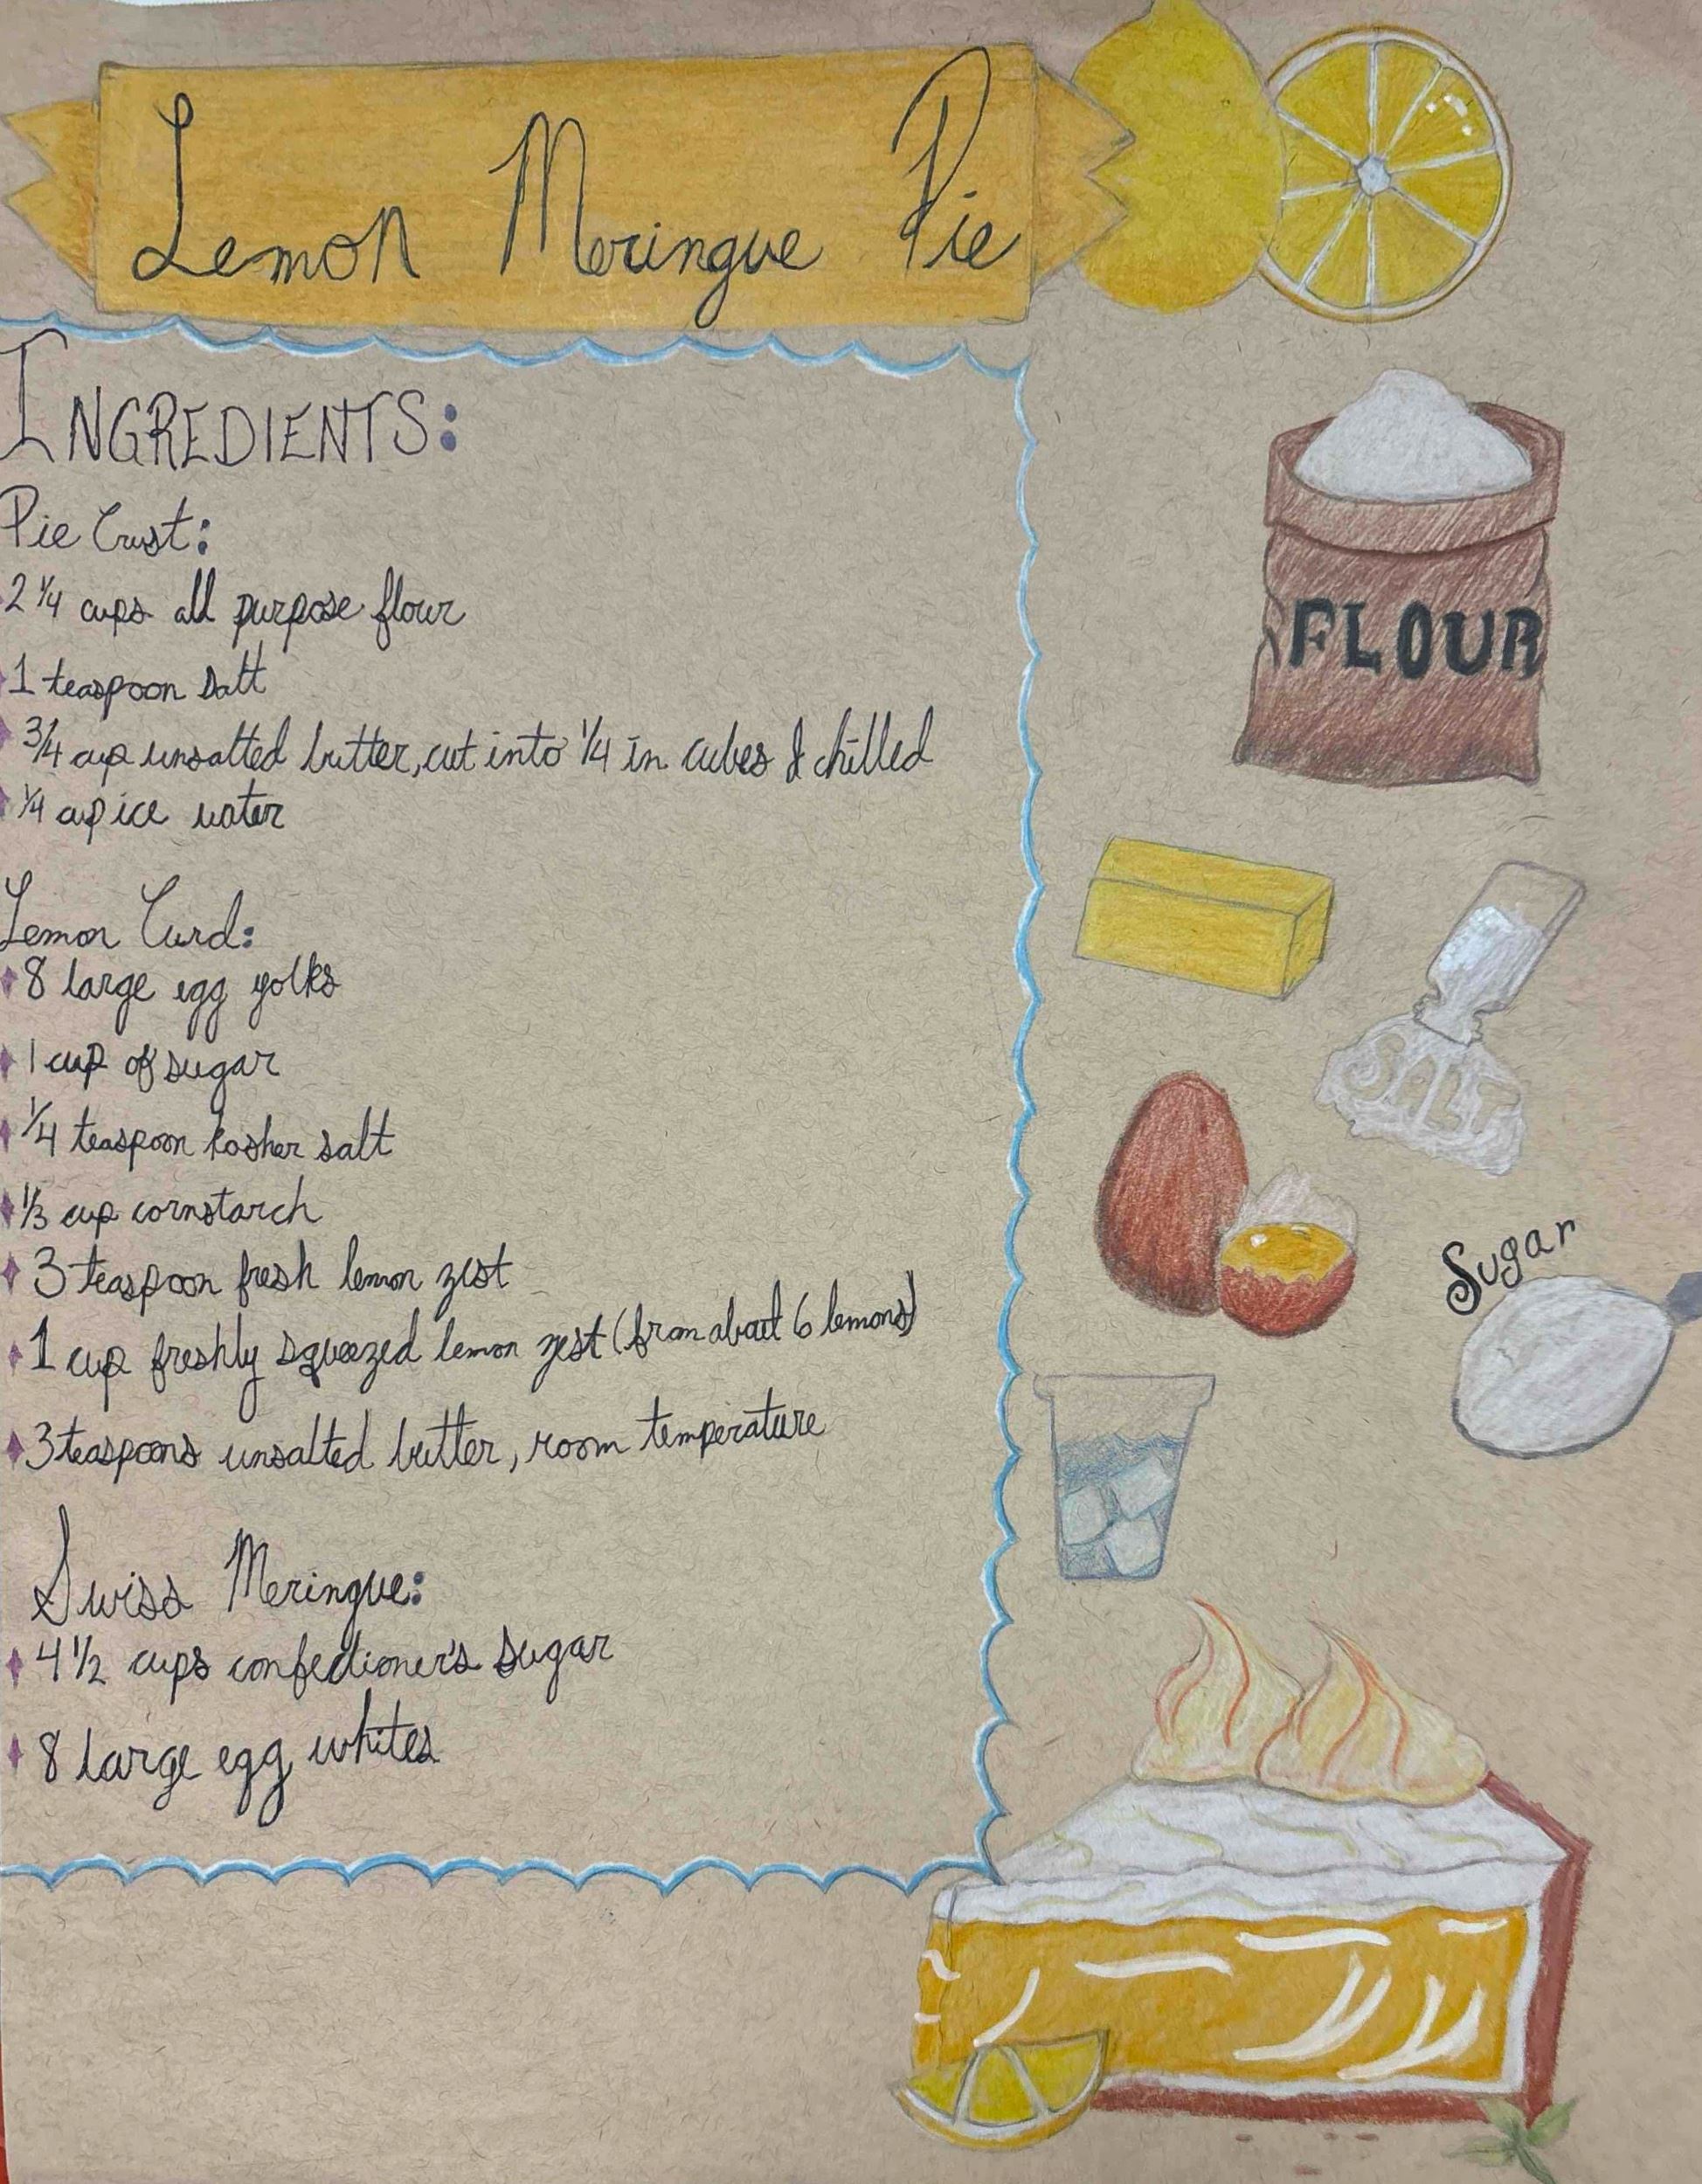 Lemon Meringue Pie
INGREDIENTS:
Pie Crust:
2 1/4 cups all purpose flour
1 teaspoon salt
3/4 cup unsalted butter, cut into 1/4 in cubes & chilled
1/4 cup ice water
Lemon Curd:
8 large egg yolks
1 cup of sugar
1/4 teaspoon kosher salt
1/3 cup cornstarch
3 teaspoon fresh lemon zest
1 cup freshly squeezed lemon zest (from about 6 lemons)
3 teaspoons unsalted butter, room temperature
Swiss Meringue:
4 1/2 cups confectioner's sugar
8 large egg whites
FLOUR
SALT
Sugar